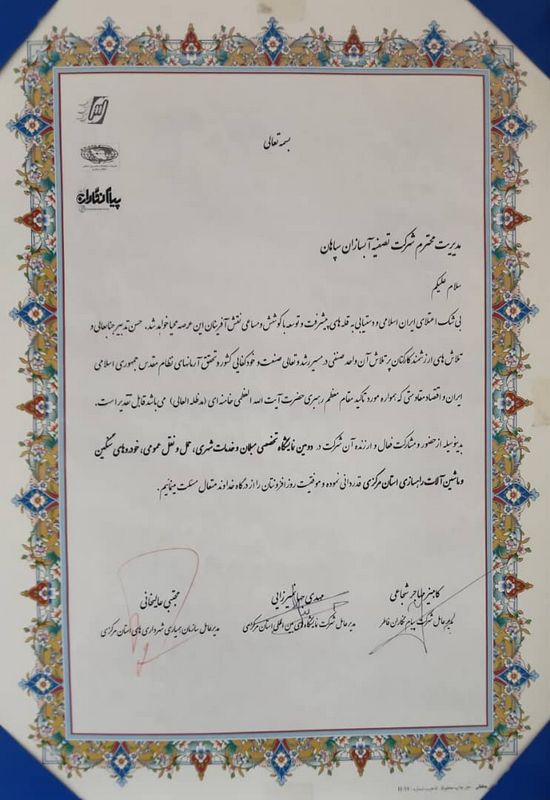 بسمه تعالی
پیام نگاران
مدیریت محترم شرکت تصفیه آبسازان سپاهان
سلام علیکم
بی شک اعتلای ایران اسلامی و دستیابی به قله های پیشرفت و توسعه با کوشش و مساعی نقش آفرینان این عرصه مهیا خواهد شد. حسن تدبیر جنابعالی و
تلاش های ارزشمند کارکنان پرتلاش آن واحد صنفی در مسیر رشد و تعالی صنعت و خودکفایی کشور و تحقق آرمانهای نظام مقدس جمهوری اسلامی
ایران و اقتصاد مقاومتی که همواره مورد تاکید مقام معظم رهبری حضرت آیت الله العظمی خامنه ای (مدظله العالی) می باشد قابل تقدیر است.
بدینوسیله از حضور و مشارکت فعال و ارزنده آن شرکت در دومین نمایشگاه تخصصی مبلمان و خدمات شهری، حمل و نقل عمومی، خودروهای سنگین
و ماشین آلات راهسازی استان مرکزی قدردانی نموده و موفقیت روزافزونتان را از درگاه خداوند متعال مسئلت مینمائیم.
کامبیز هاجر شجاعی
مدیرعامل شرکت پیام نگاران فاطر
مهدی میرزایی
مدیرعامل شرکت نمایشگاه های بین المللی استان مرکزی
مجتبی عالیخانی
مدیرعامل سازمان همیاری شهرداری های استان مرکزی